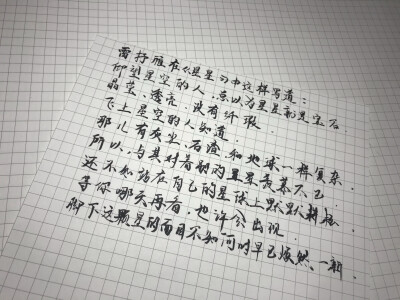 雷抒雁在《星星》中这样写道：
仰望星空的人，总以为星星就是宝石
晶莹、透亮，没有纤瑕.
飞上星空的人知道，
那儿有灰尘、石渣，和地球一样复杂.
所以，与其对着别的星星羡慕不已，
还不如站在自己的星球上默默耕耘，
等你哪天再看，也许会出现
脚下这颗星的面目不知何时早已焕然一新.